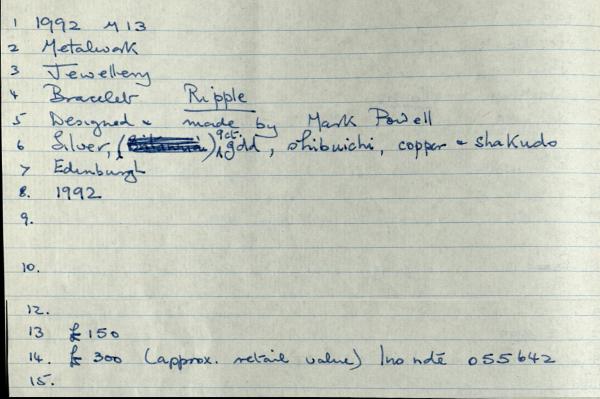 1 1992 M13
2 Metalwork
3 Jewellery
4 Bracelet Ripple
5 Designed & made by Mark Powell
6 Silver, ( ) 9ct. gold, shibuichi, copper & shakudo
7 Edinburgh
8. 1992
9.
10.
12.
13 £150
14. £300 (approx. retail value) 055642
15.